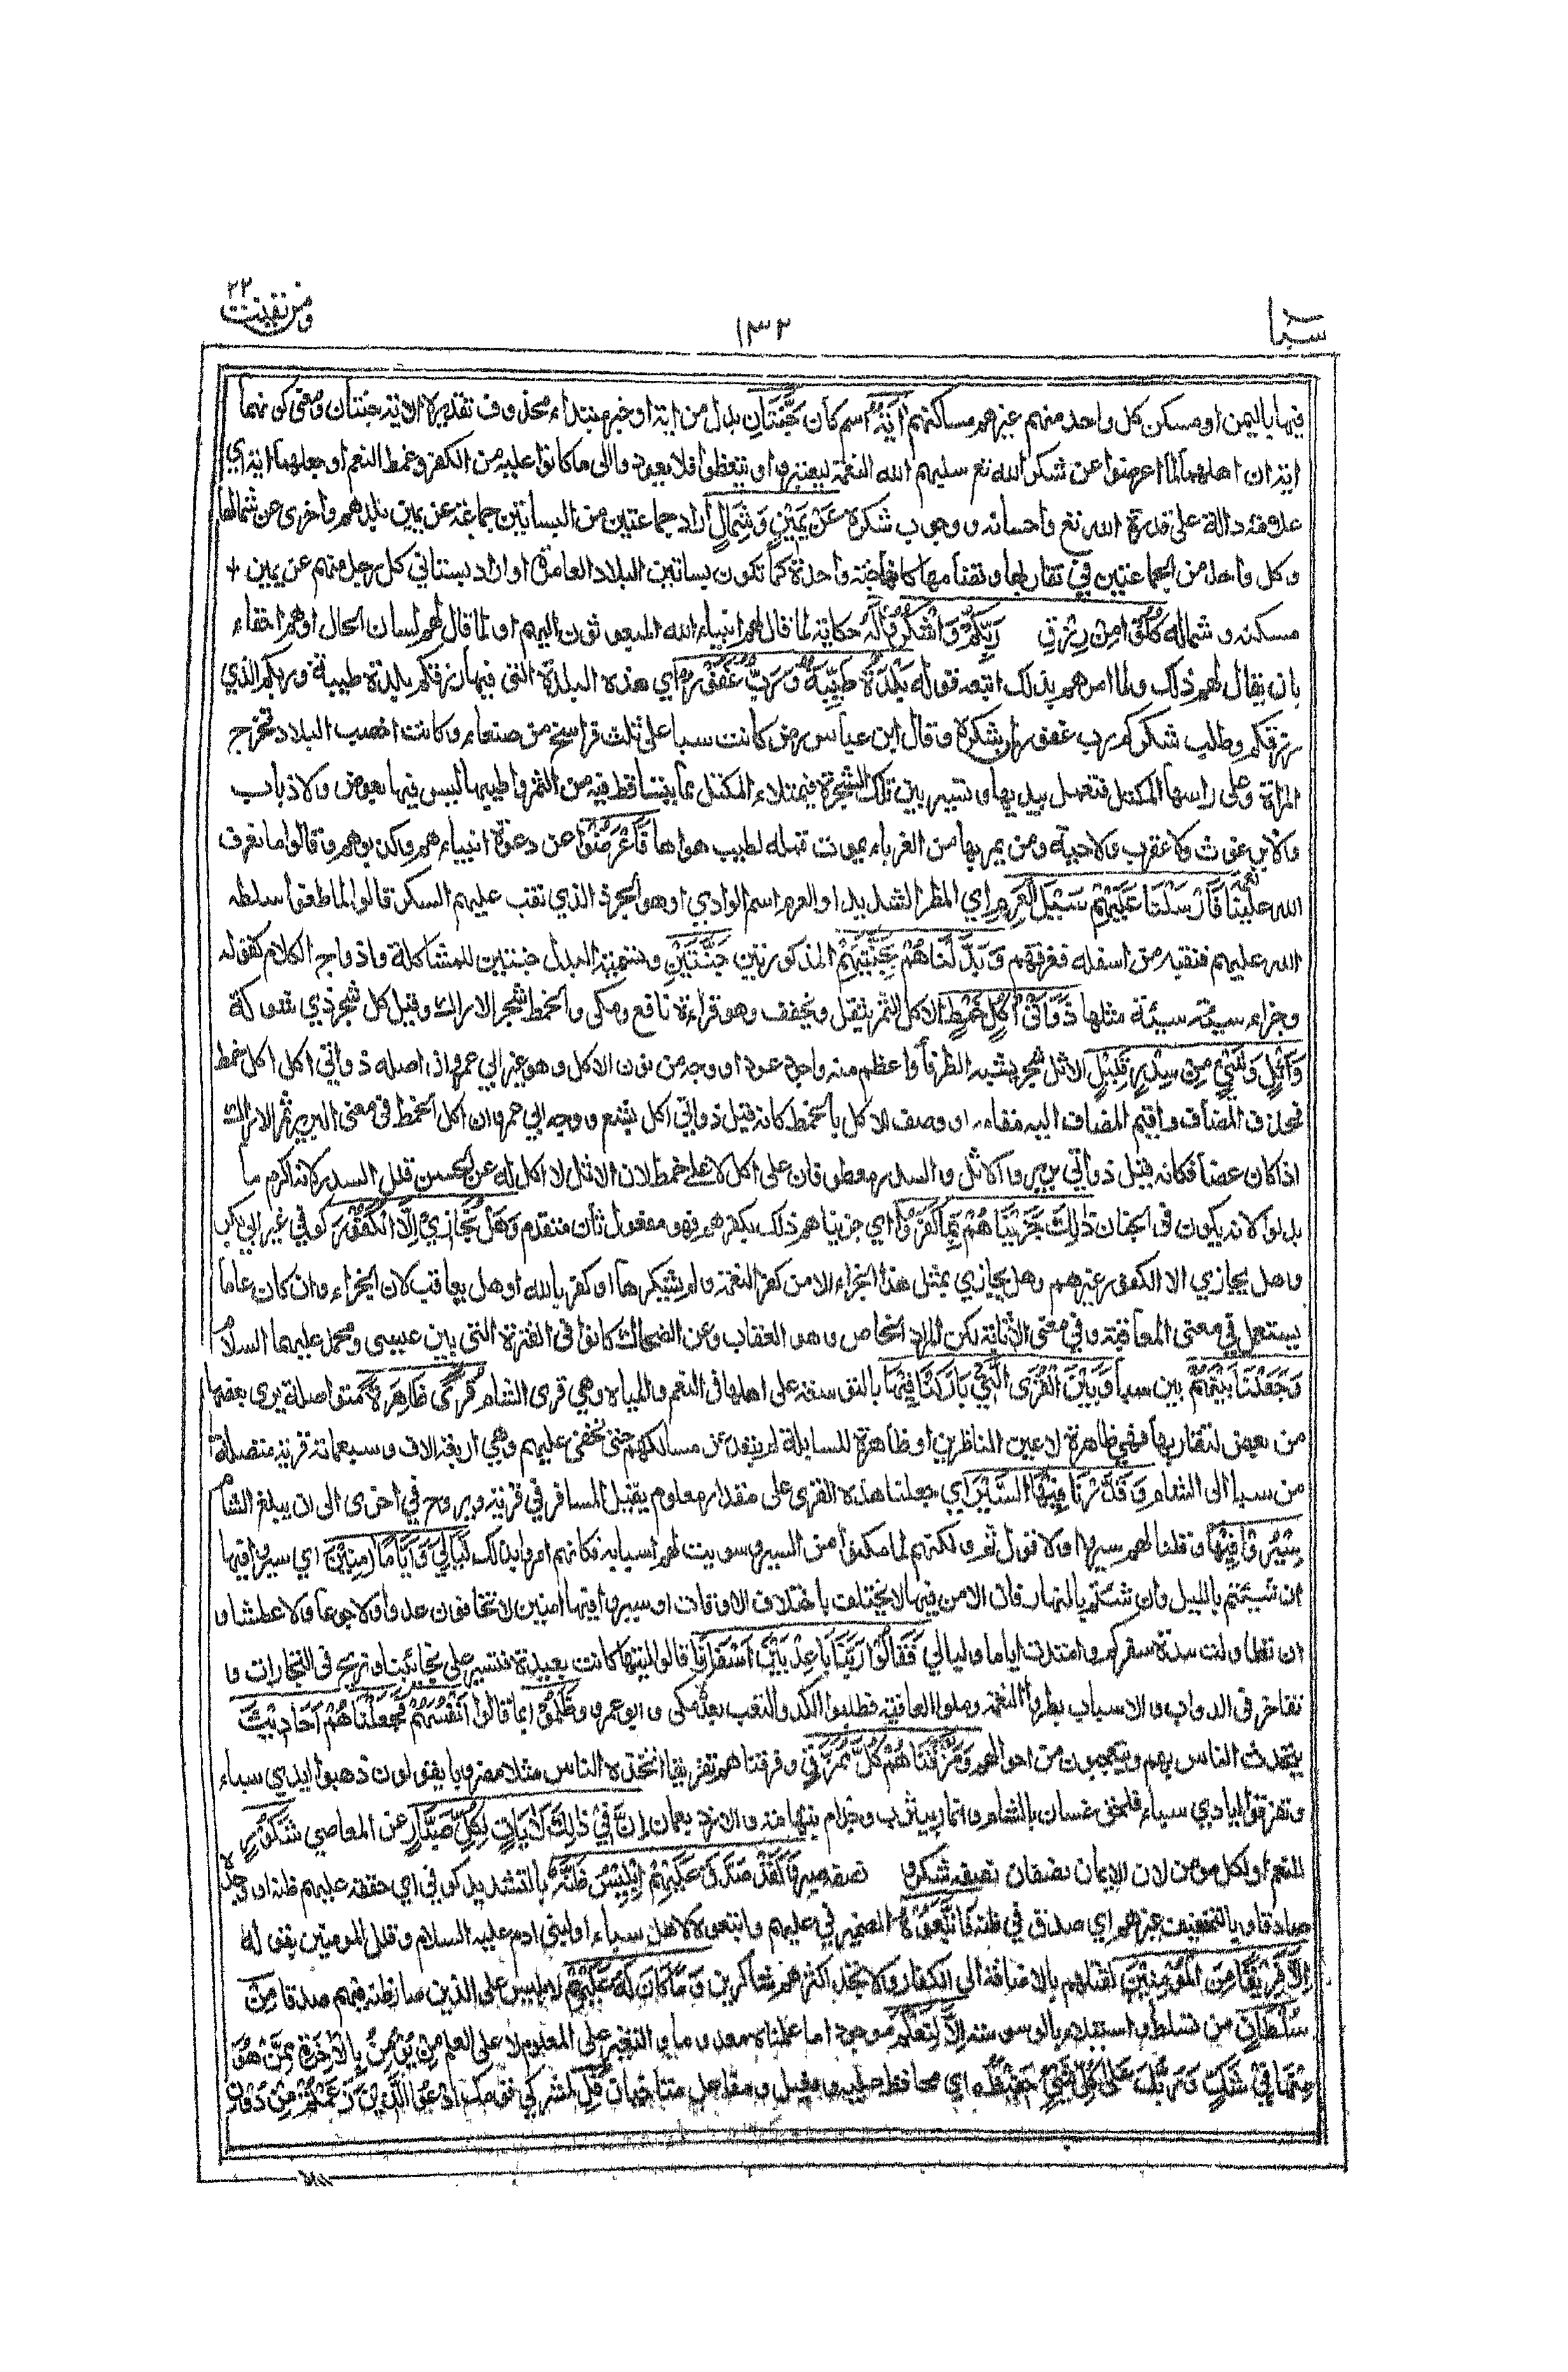 سبا ١٣٢ ومن يقنت ٢٢
فيها باليمن او مسكن كل واحد منهم غيرهم مساكنهم اٰيَةٌ اسم كان جَنَّتَانِ بدل من اية او خبر مبتداء محذوف تقديره الاية جنتان ومعنى كونهما
اية ان اهلهما لما اعرضوا عن شكر الله تع سلبهم الله النعمة ليعتبروا ويتعظوا فلا يعودوا الى ما كانوا عليه من الكفر وغمط النعم او جعلهما اية اي
علامة دالة على قدرة الله تع واحسانه ووجوب شكره عَنْ يَمِيْنٍ وَشِمَالٍ اراد جماعتين من البساتين جماعة عن يمين بلدهم واخرى عن شمالها
وكل واحد من الجماعتين في تقاربها وتضامها كانها جنة واحدة كما تكون بساتين البلاد العامرة او اراد بستاني كل رجل منهم عن يمين
مسكنه وشماله كُلُوْا مِنْ رِزْقِ رَبِّكُمْ وَاشْكُرُوْا لَهُ حكاية لما قال لهم انبياء الله المبعوثون اليهم او لما قال لهم لسان الحال او هم احقاء
بان يقال لهم ذلك ولما امرهم بذلك اتبعه قوله بَلْدَةٌ طَيِّبَةٌ وَّرَبٌّ غَفُوْرٌ اي هذه البلدة التي فيها رزقكم بلدة طيبة وربكم الذي
رزقكم وطلب شكركم رب غفور لمن شكره وقال ابن عباس رض كانت سبا على ثلث فراسخ من صنعاء وكانت اخصب البلاد تخرج
المراة وعلى راسها المكتل فتعمل بيديها وتسير بين تلك الشجرة فيمتلاء المكتل مما يتساقط فيه من الثمر وطيبها ليس فيها بعوض ولا ذباب
ولا برغوث ولا عقرب ولا حية ومن يمر بها من الغرباء يموت قمله لطيب هواها فَاَعْرَضُوْا عن دعوة انبياءهم وكذبوهم وقالوا ما نعرف
الله علينا نعمة فَاَرْسَلْنَا عَلَيْهِمْ سَيْلَ الْعَرِمِ اي المطر الشديد او العرم اسم الوادي او هو الجرذ الذي نقب عليهم السكر قالوا لما طغوا سلطه
الله عليهم فنقبه من اسفله فغرقهم وَبَدَّلْنَاهُمْ بِجَنَّتَيْهِمْ المذكورتين جَنَّتَيْنِ وتسمية البدل جنتين للمشاكلة وازدواج الكلام كقوله
وجزاء سيئة سيئة مثلها ذَوَاتَيْ اُكُلٍ خَمْطٍ الاكل الثمر يثقل ويخفف وهو قراءة نافع ومكي والخمط شجر الاراك وقيل كل شجر ذي شوكة
وَاَثْلٍ وَشَيْءٍ مِنْ سِدْرٍ قَلِيْلٍ الاثل شجر يشبه الطرفا واعظم منه واجود عودا ووجه من نون الاكل وهو غير ابي عمرو ان اصله ذواتي اكل اكل خمط
فحذف المضاف واقيم المضاف اليه مقامه او وصف الاكل بالخمط كانه قيل ذواتي اكل بشع ووجه ابي عمرو ان اكل الخمط في معنى البرير ثمر الاراك
اذا كان غضا فكانه قيل ذواتي برير والاثل والسدر معطوفان على اكل لا على خمط لان الاثل لا اكل له عن الحسن قلل السدر لانه اكرم ما
بدلوا لانه يكون في الجنان ذٰلِكَ جَزَيْنَاهُمْ بِمَا كَفَرُوْا اي جزيناهم ذلك بكفرهم فهو مفعول ثان متقدم وَهَلْ نُجَازِيْ اِلَّا الْكَفُوْرَ كوفي غير ابي بكر
وهل يجازى الا الكفور غيرهم وهل يجازى بمثل هذا الجزاء الا من كفر النعمة ولم يشكرها او كفر بالله او هل يعاقب لان الجزاء وان كان عاما
يستعمل في معنى المعاقبة وفي معنى الاثابة لكن المراد الخاص وهو العقاب وعن الضحاك كانوا في الفترة التي بين عيسى ومحمد عليهما السلام
وَجَعَلْنَا بَيْنَهُمْ بين سبا وَبَيْنَ الْقُرَى الَّتِيْ بَارَكْنَا فِيْهَا بالتوسعة على اهلها في النعم والمياه وهي قرى الشام قُرًى ظَاهِرَةً متواصلة يرى بعضها
من بعض لتقاربها فهي ظاهرة لاعين الناظرين او ظاهرة للسابلة لم تبعد عن مسالكهم حتى تخفى عليهم وهي اربعة الاف وسبعمائة قرية متصلة
من سبا الى الشام وَقَدَّرْنَا فِيْهَا السَّيْرَ اي جعلنا هذه القرى على مقدار معلوم يقيل المسافر في قرية ويروح في اخرى الى ان يبلغ الشام
سِيْرُوْا فِيْهَا وقلنا لهم سيروا ولا قول ثم ولكنهم لما مكنوا من السير وسويت لهم اسبابه فكانهم امروا بذلك لَيَالِيَ وَاَيَّامًا اٰمِنِيْنَ اي سيروا فيها
ان شئتم بالليل وان شئتم بالنهار فان الامن فيها لا يختلف باختلاف الاوقات او سيروا فيها امنين لا تخافون عدوا ولا جوعا ولا عطشا و
ان تطاولت مدة سفركم وامتدت اياما وليالي فَقَالُوْا رَبَّنَا بَاعِدْ بَيْنَ اَسْفَارِنَا قالوا ليتها كانت بعيدة فنسير على نجائبنا ونربح في التجارات و
نفاخر في الدواب والاسباب بطروا النعمة وملوا العافية فطلبوا الكد والتعب بعّد مكي وابو عمرو وَظَلَمُوْا بما قالوا اَنْفُسَهُمْ فَجَعَلْنَاهُمْ اَحَادِيْثَ
يتحدث الناس بهم ويتعجبون من احوالهم وَمَزَّقْنَاهُمْ كُلَّ مُمَزَّقٍ وفرقناهم تفريقا اتخذه الناس مثلا مضروبا يقولون ذهبوا ايدي سباء
وتفرقوا ايادي سباء فلحق غسان بالشام وانمار بيثرب وجذام بتهامة والازد بعمان اِنَّ فِيْ ذٰلِكَ لَاٰيَاتٍ لِكُلِّ صَبَّارٍ عن المعاصي شَكُوْرٍ
للنعم او لكل مومن لان الايمان نصفان نصفه شكر ونصفه صبر وَلَقَدْ صَدَّقَ عَلَيْهِمْ اِبْلِيْسُ ظَنَّهُ بالتشديد كوفي اي حققه عليهم ظنه او وجده
صادقا وبالتخفيف غيرهم اي صدق في ظنه فَاتَّبَعُوْهُ الضمير في عليهم واتبعوه لاهل سباء او لبني ادم عليه السلام وقلل المومنين بقوله
اِلَّا فَرِيْقًا مِنَ الْمُؤْمِنِيْنَ لقلتهم بالاضافة الى الكفار ولا تجد اكثرهم شاكرين وَمَا كَانَ لَهُ عَلَيْهِمْ لابليس على الذين صار ظنه فيهم صدقا مِنْ
سُلْطَانٍ من تسلط واستيلاء بالوسوسة اِلَّا لِنَعْلَمَ موجودا ما علمناه معدوما والتغير على المعلوم لا على العلم مَنْ يُؤْمِنُ بِالْاٰخِرَةِ مِمَّنْ هُوَ
مِنْهَا فِيْ شَكٍّ وَرَبُّكَ عَلٰى كُلِّ شَيْءٍ حَفِيْظٌ اي محافظ عليه وفعيل ومفاعل متاخيان قُلِ لمشركي قومك ادْعُوا الَّذِيْنَ زَعَمْتُمْ مِنْ دُوْنِ